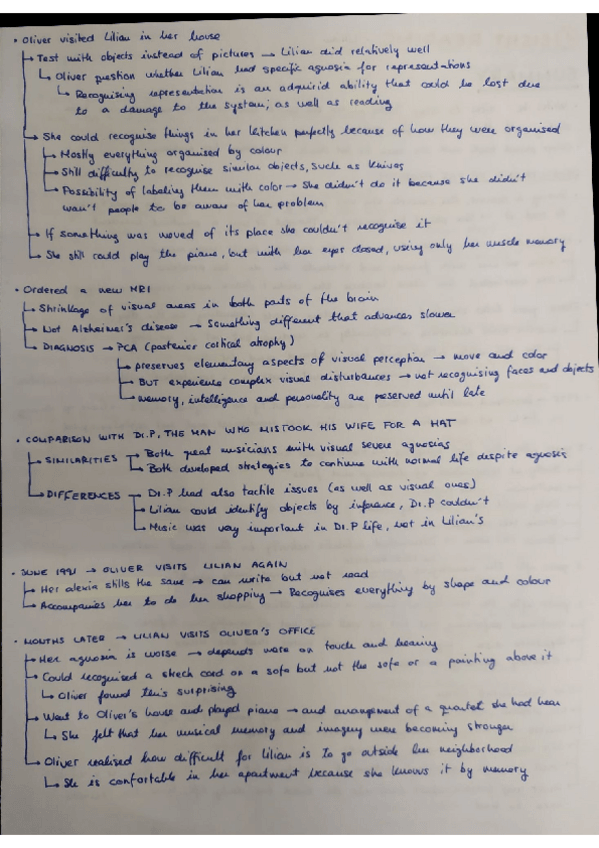 • Oliver visited Lilian in her house
→ Test with objects instead of pictures → Lilian did relatively well
↳ Oliver question whether Lilian had specific agnosia for representations
↳ Recognising representation is an adquirid ability that could be lost due
to a damage to the system; as well as reading
→ She could recognise things in her kitchen perfectly because of how they were organised
→ Mostly everything organised by colour
→ Still difficulty to recognise similar objects, such as knives
→ Possibility of labeling them with color → She didn't do it because she didn't
wan't people to be aware of her problem
→ If something was moved of its place she couldn't recognise it
→ She still could play the piano, but with her eyes closed, using only her muscle memory
• Ordered a new MRI
→ Shrinkage of visual areas in both parts of the brain
→ Not Alzheimer's disease → Something different that advances slower
→ DIAGNOSIS → PCA (posterior cortical atrophy)
→ preserves elementary aspects of visual perception → move and color
→ BUT experience complex visual disturbances → not recognising faces and objects
→ memory, intelligence and personality are preserved until late
• COMPARISON WITH Dr.P, THE MAN WHO MISTOOK HIS WIFE FOR A HAT
→ SIMILARITIES → Both great musicians with visual severe agnosias
→ Both developed strategies to continue with normal life despite agnosis
→ DIFFERENCES → Dr.P had also tactile issues (as well as visual ones)
→ Lilian could identify objects by inference, Dr.P couldn't
→ Music was very important in Dr.P life, not in Lilian's
• JUNE 1991 → OLIVER VISITS LILIAN AGAIN
→ Her alexia stills the same → can write but not read
→ Accompanies her to do her shopping → Recognises everything by shape and colour
• MOUTHS LATER → LILIAN VISITS OLIVER'S OFFICE
→ Her agnosia is worse → depends more on touch and hearing
→ Could recognised a skech card on a sofa but not the sofa or a painting above it
↳ Oliver found this surprising
→ Went to Oliver's house and played piano → and arrangement of a quartet she had hear
↳ She felt that her musical memory and imagery were becoming stronger
→ Oliver realised how difficult for Lilian is to go outside her neighborhood
↳ She is confortable in her apartment because she knows it by memory